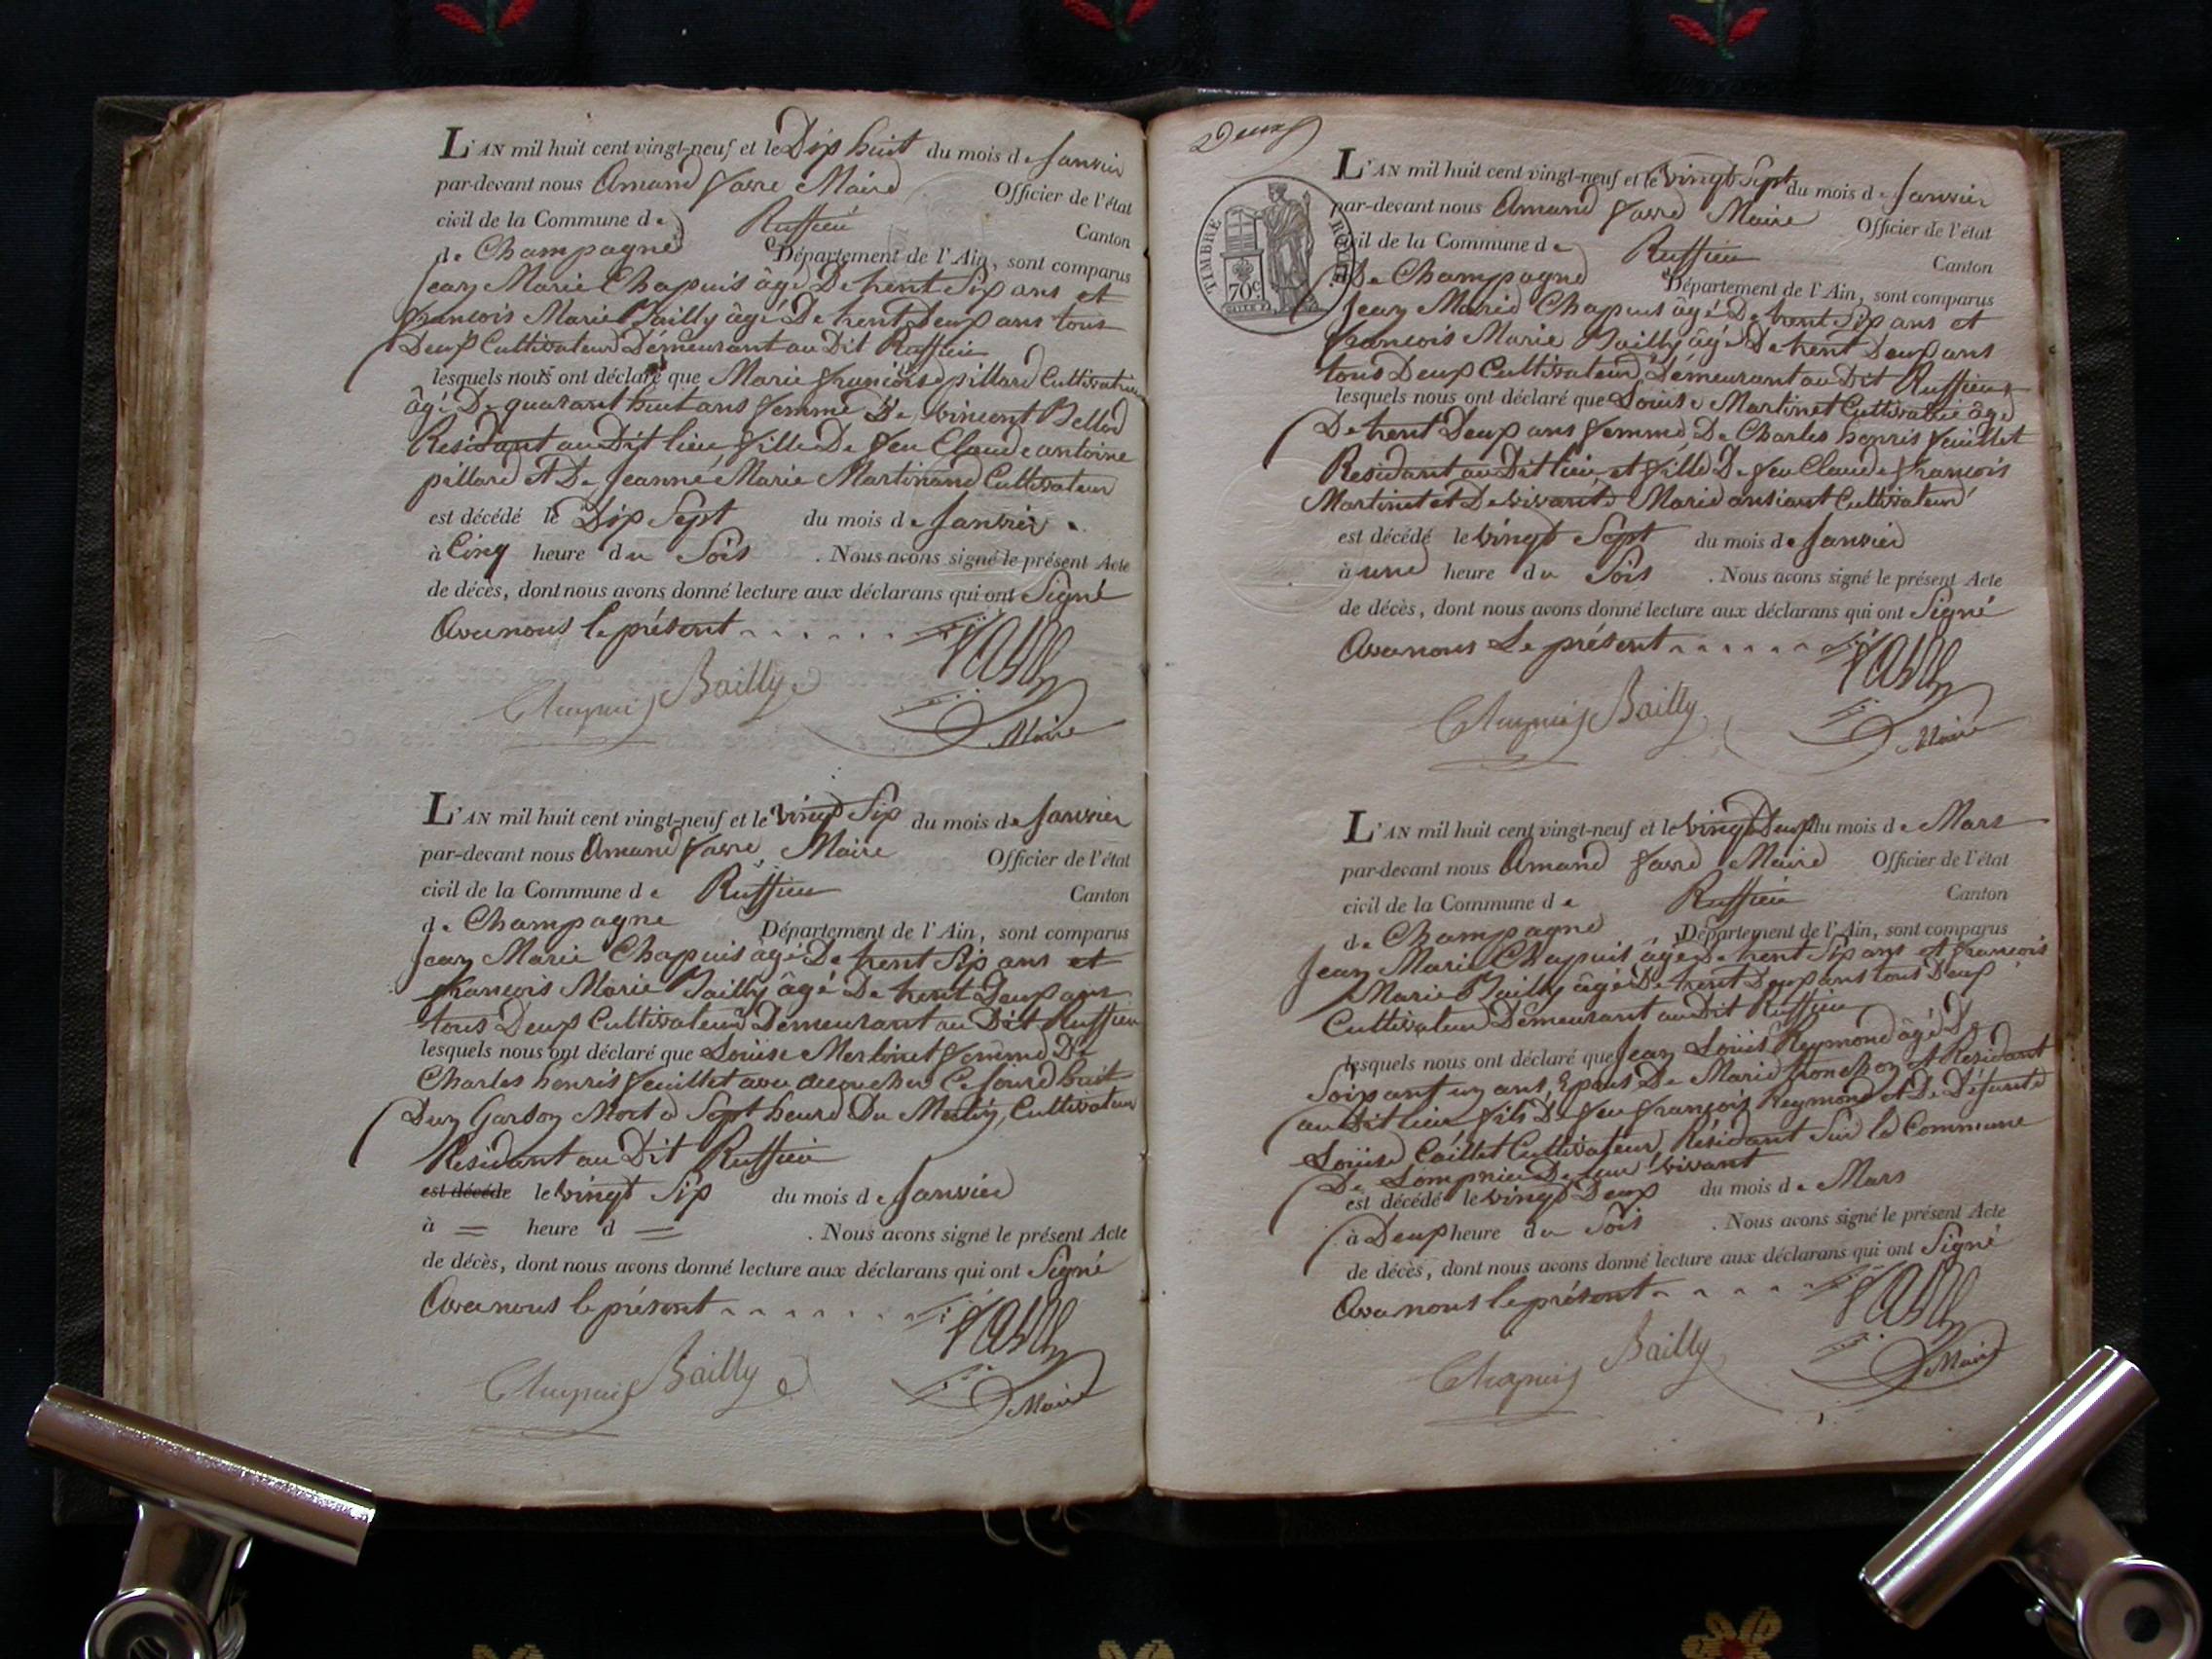 L'AN mil huit cent vingt-neuf et le Dix huit du mois de Janvier
par-devant nous Amand favre Maire Officier de l'état
civil de la Commune de Ruffieu Canton
de Champagne Département de l'Ain, sont comparus
Jean Marie Chapuis âgé De trent Six ans et
francois Marie Bailly âgé De trent Deux ans tous
Deux Cultivateur Demeurant au Dit Ruffieu
lesquels nous ont déclaré que Marie francoise pillard Cultivatrice
âgé De quarant huit ans femme De vincent Bellod
Residant au Dit lieu, fille De feu Claude antoine
pillard et De Jeanne Marie Martinand Cultivateur
est décédé le Dix Sept du mois de Janvier
à Cinq heure du Soir . Nous avons signé le présent Acte
de décès, dont nous avons donné lecture aux déclarans qui ont Signé
Avec nous le présent
Chapuis Bailly
Maire
L'AN mil huit cent vingt-neuf et le vingt Six du mois de Janvier
par-devant nous Amand favre Maire Officier de l'état
civil de la Commune de Ruffieu Canton
de Champagne Département de l'Ain, sont comparus
Jean Marie Chapuis âgé De trent Six ans et
francois Marie Bailly âgé De trent Deux ans
tous Deux Cultivateur Demeurant au Dit Ruffieu
lesquels nous ont déclaré que Louise Martinet femme De
Charles henris feuillet avoir accoucher Ce Jourd huit
Dun Garson Mort a Sept heure Du Matin, Cultivateur
Residant au Dit Ruffieu
est décédé le vingt Six du mois de Janvier
à = heure d = . Nous avons signé le présent Acte
de décès, dont nous avons donné lecture aux déclarans qui ont Signé
Avec nous le présent
Chapuis Bailly
Maire
Deux
TIMBRE ROYAL
70c
L'AN mil huit cent vingt-neuf et le vingt Sept du mois de Janvier
par-devant nous Amand favre Maire Officier de l'état
civil de la Commune de Ruffieu Canton
De Champagne Département de l'Ain, sont comparus
Jean Marie Chapuis âgé De trent Six ans et
francois Marie Bailly âgé De trent Deux ans
tous Deux Cultivateur Demeurant au Dit Ruffieu
lesquels nous ont déclaré que Louise Martinet Cultivatrice âgé
De trent Deux ans femme De Charles henris feuillet
Residant au Dit lieu, et fille De feu Claude francois
Martinet et De vivante Marie ansiant Cultivateur
est décédé le vingt Sept du mois de Janvier
à une heure du Soir . Nous avons signé le présent Acte
de décès, dont nous avons donné lecture aux déclarans qui ont Signé
Avec nous Le présent
Chapuis Bailly
Maire
L'AN mil huit cent vingt-neuf et le vingt Deux du mois de Mars
par-devant nous Amand favre Maire Officier de l'état
civil de la Commune de Ruffieu Canton
de Champagne Département de l'Ain, sont comparus
Jean Marie Chapuis âgé De trent Six ans et francois
Marie Bailly âgé De trent Deux ans tous Deux
Cultivateur Demeurant au Dit Ruffieu
lesquels nous ont déclaré que Jean Louis Reymond âgé De
Soixant un ans, Epoux De Marie tronchon et Residant
au Dit lieu fils De feu francois Reymond et De Défunte
Louise Caillet Cultivateur, Résidant Sur la Commune
De Lompnieu De leur vivant
est décédé le vingt Deux du mois de Mars
à Deux heure du Soir . Nous avons signé le présent Acte
de décès, dont nous avons donné lecture aux déclarans qui ont Signé
Avec nous le présent
Chapuis Bailly
Maire